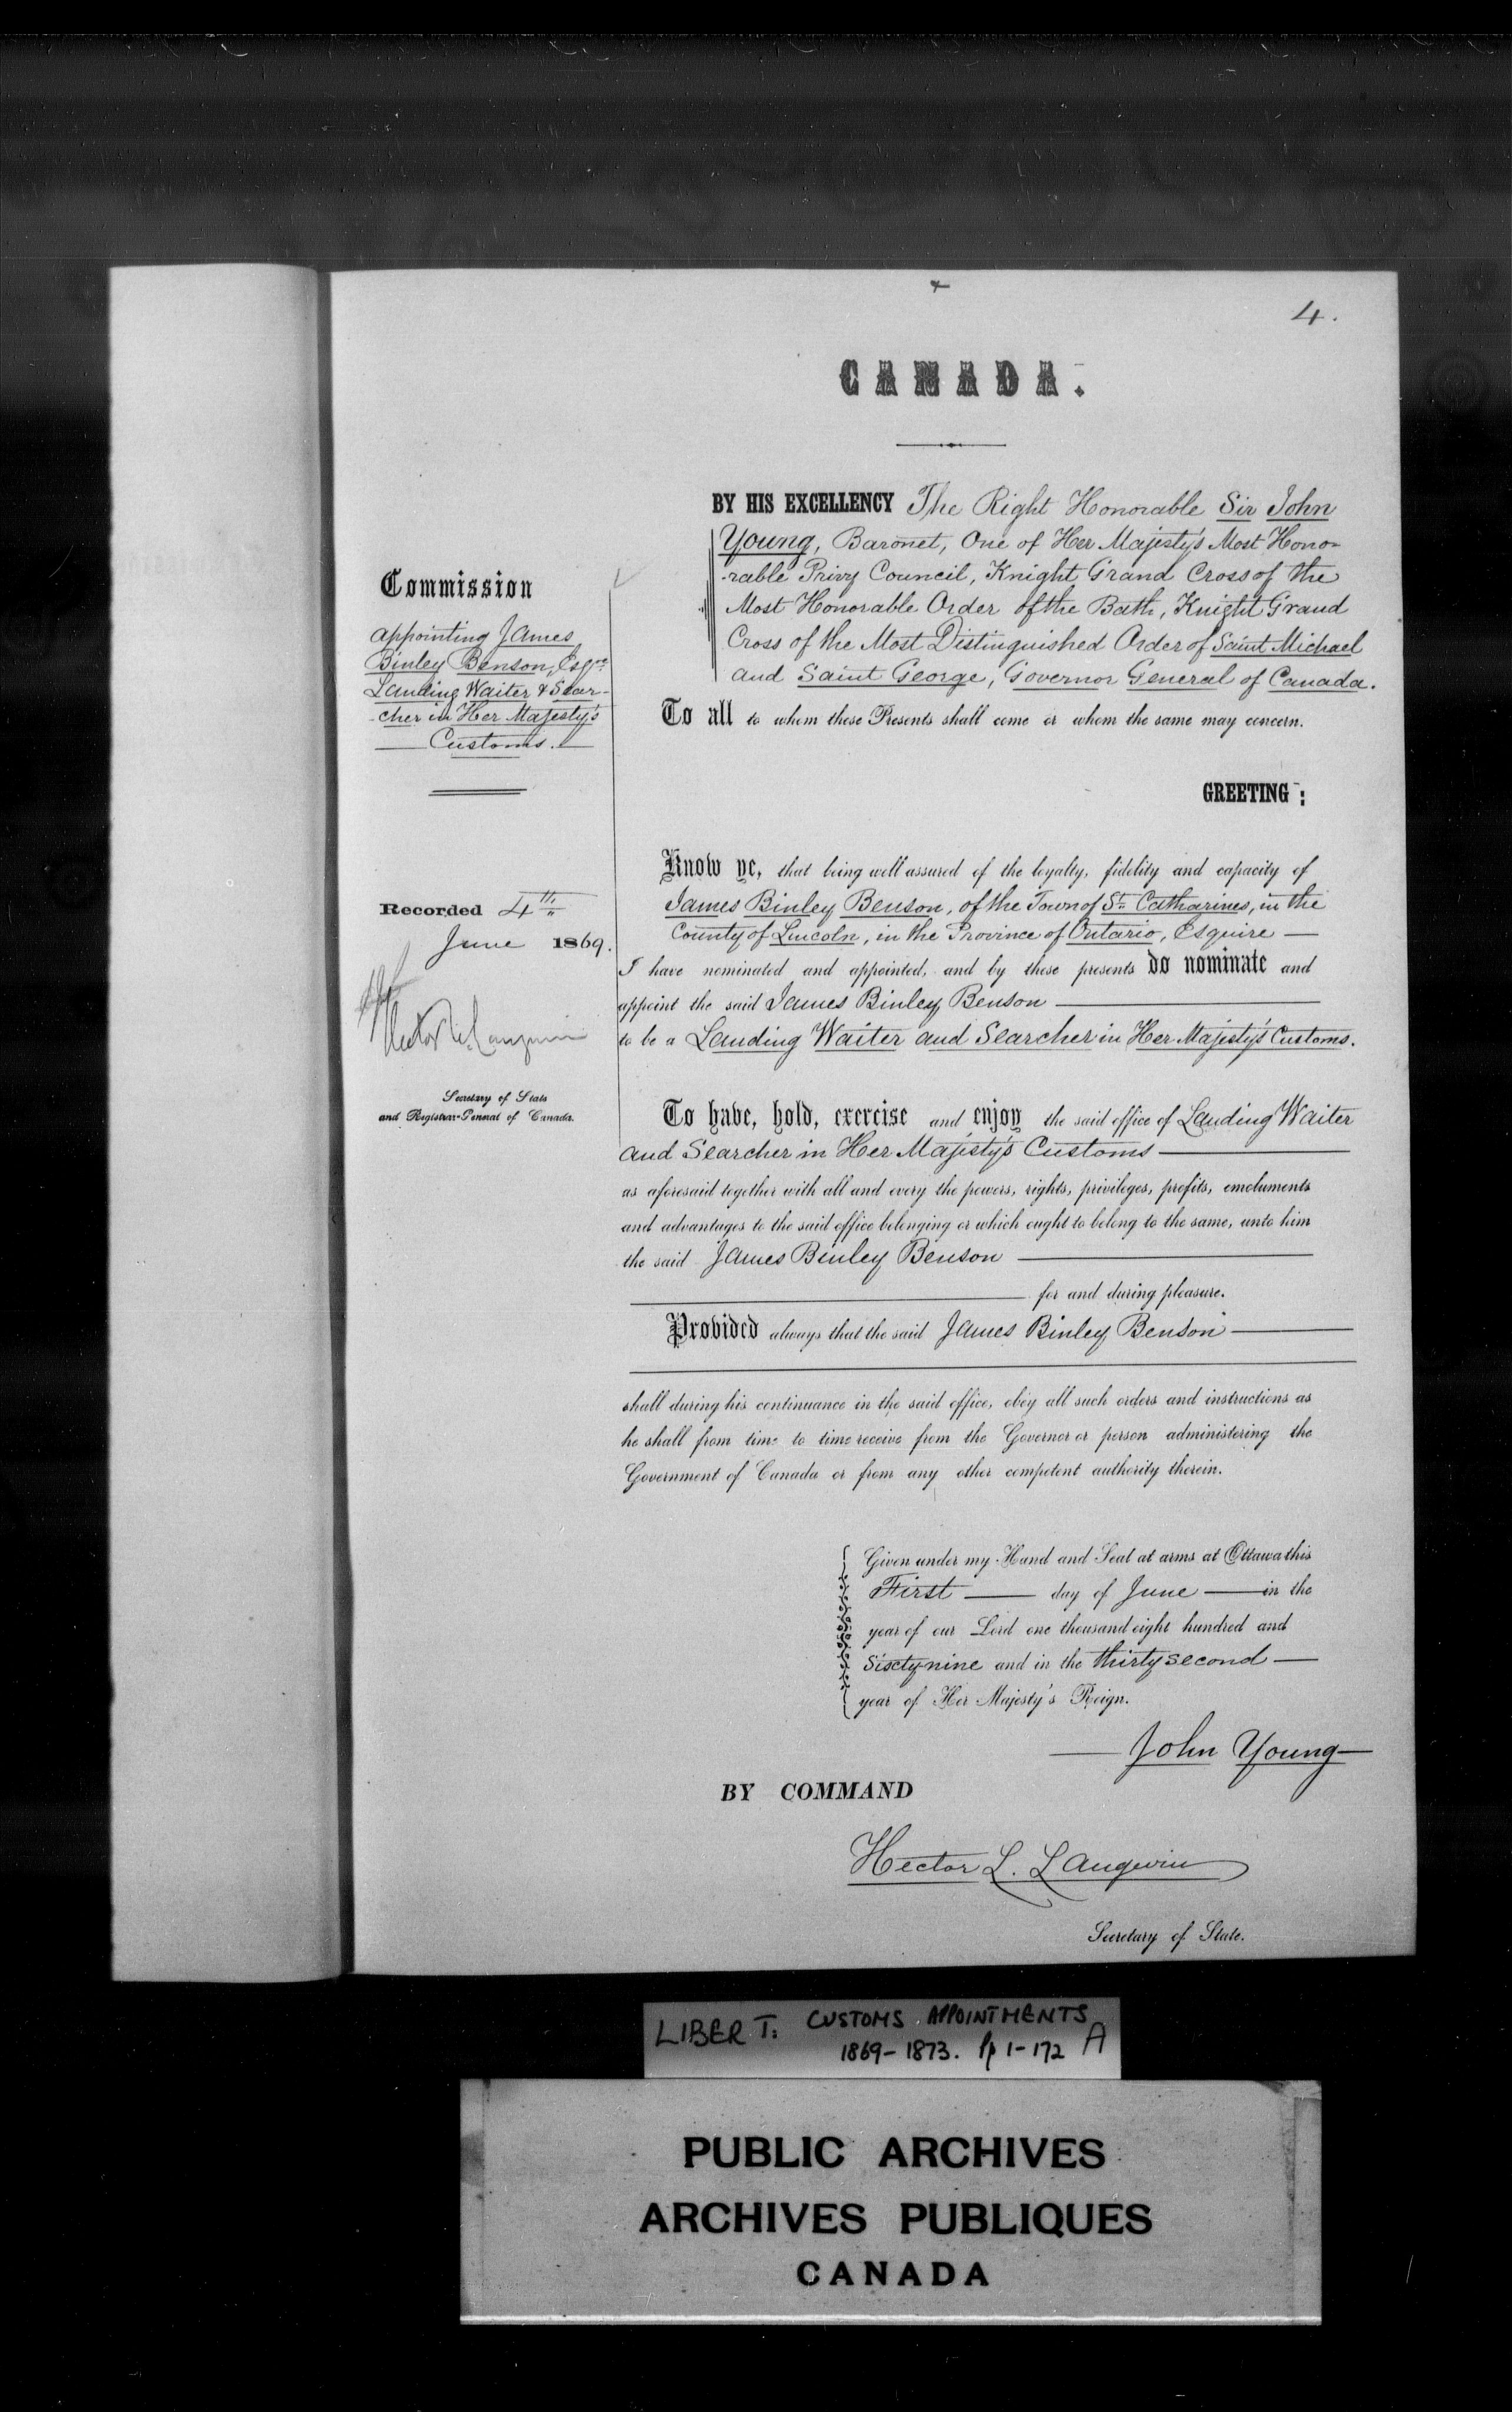 4.
CANADA.
BY HIS EXCELLENCY The Right Honorable Sir John
Young, Baronet, One of Her Majesty's Most Hono-
-rable Privy Council, Knight Grand Cross of the
Most Honorable Order of the Bath, Knight Grand
Cross of the Most Distinguished Order of Saint Michael
and Saint George, Governor General of Canada.
To all to whom these Presents shall come or whom the same may concern.
GREETING :
Commission
appointing James
Binley Benson, Esqre
Landing Waiter & Sear-
-cher in Her Majesty's
Customs.
Recorded 4th
June 1869.
Hector L. Langevin
Secretary of State
and Registrar-General of Canada.
Know ye, that being well assured of the loyalty, fidelity and capacity of
James Binley Benson, of the Town of St. Catharines, in the
County of Lincoln, in the Province of Ontario, Esquire —
I have nominated and appointed, and by these presents do nominate and
appoint the said James Binley Benson —
to be a Landing Waiter and Searcher in Her Majesty's Customs.
To have, hold, exercise and enjoy the said office of Landing Waiter
and Searcher in Her Majesty's Customs —
as aforesaid together with all and every the powers, rights, privileges, profits, emoluments
and advantages to the said office belonging or which ought to belong to the same, unto him
the said James Binley Benson —
— for and during pleasure.
Provided always that the said James Binley Benson —
shall during his continuance in the said office, obey all such orders and instructions as
he shall from time to time receive from the Governor or person administering the
Government of Canada or from any other competent authority therein.
Given under my Hand and Seal at arms at Ottawa this
First — day of June — in the
year of our Lord one thousand eight hundred and
Sixty nine and in the thirty second —
year of Her Majesty's Reign.
— John Young —
BY COMMAND
Hector L. Langevin
Secretary of State.
LIBER T. CUSTOMS APPOINTMENTS
1869-1873. pp 1-172 A
PUBLIC ARCHIVES
ARCHIVES PUBLIQUES
CANADA